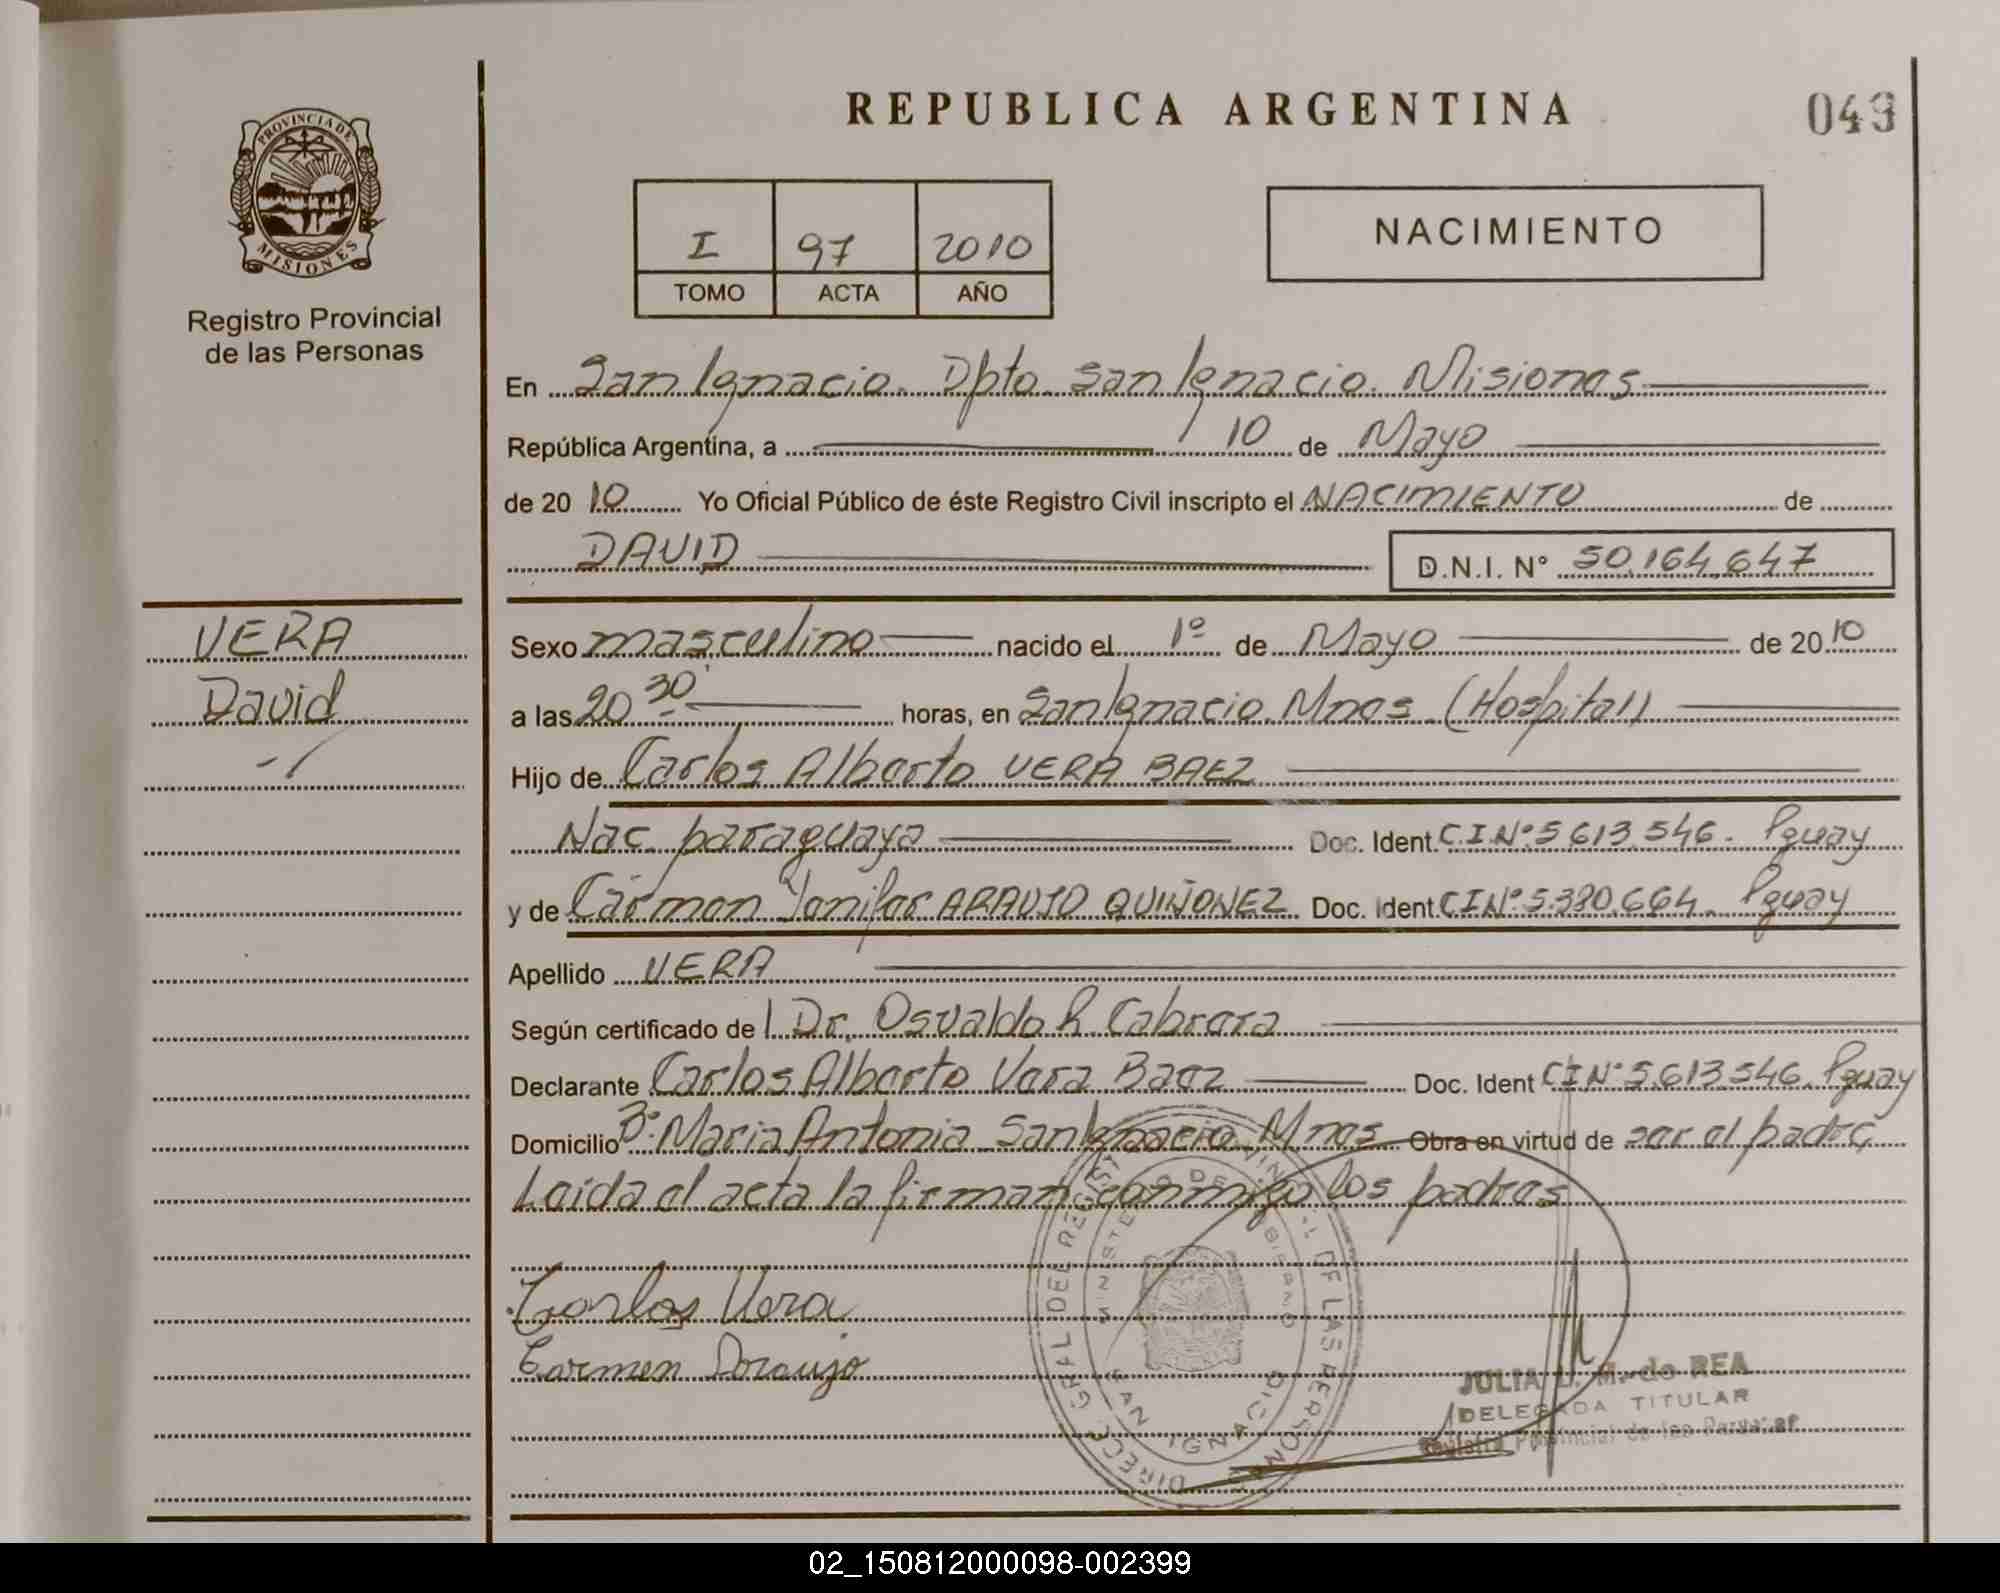 REPUBLICA ARGENTINA
049
PROVINCIA DE
MISIONES
Registro Provincial
de las Personas
I 97 2010
TOMO ACTA AÑO
NACIMIENTO
En San Ignacio. Dpto. San Ignacio. Misiones
República Argentina, a 10 de Mayo
de 20 10 Yo Oficial Público de éste Registro Civil inscripto el NACIMIENTO de
DAVID D.N.I. N° 50.164.647
VERA
David
Sexo masculino nacido el 1º de Mayo de 20 10
a las 20 30' horas, en San Ignacio. Mnes (Hospital)
Hijo de Carlos Alberto VERA BAEZ
Nac. paraguaya Doc. Ident. C.I.Nº 5.613.546. Pguay
y de Carmen Yenifer ARAUJO QUIÑONEZ Doc. Ident. C.I.Nº 5.380.664. Pguay
Apellido VERA
Según certificado de Dr. Osvaldo R Cabrera
Declarante Carlos Alberto Vera Baez Doc. Ident C I Nº 5.613.546. Pguay
Domicilio Bº. Maria Antonia San Ignacio Mnes Obra en virtud de ser el padre
Leida el acta la firman conmigo los padres
Carlos Vera
Carmen Araujo
DIRECC. GRAL DEL REGIST PROVINCIAL DE LAS PERSONAS
SAN IGNACIO
JULIA L. M. de REA
DELEGADA TITULAR
Registro Provincial de las Personas
02_150812000098-002399